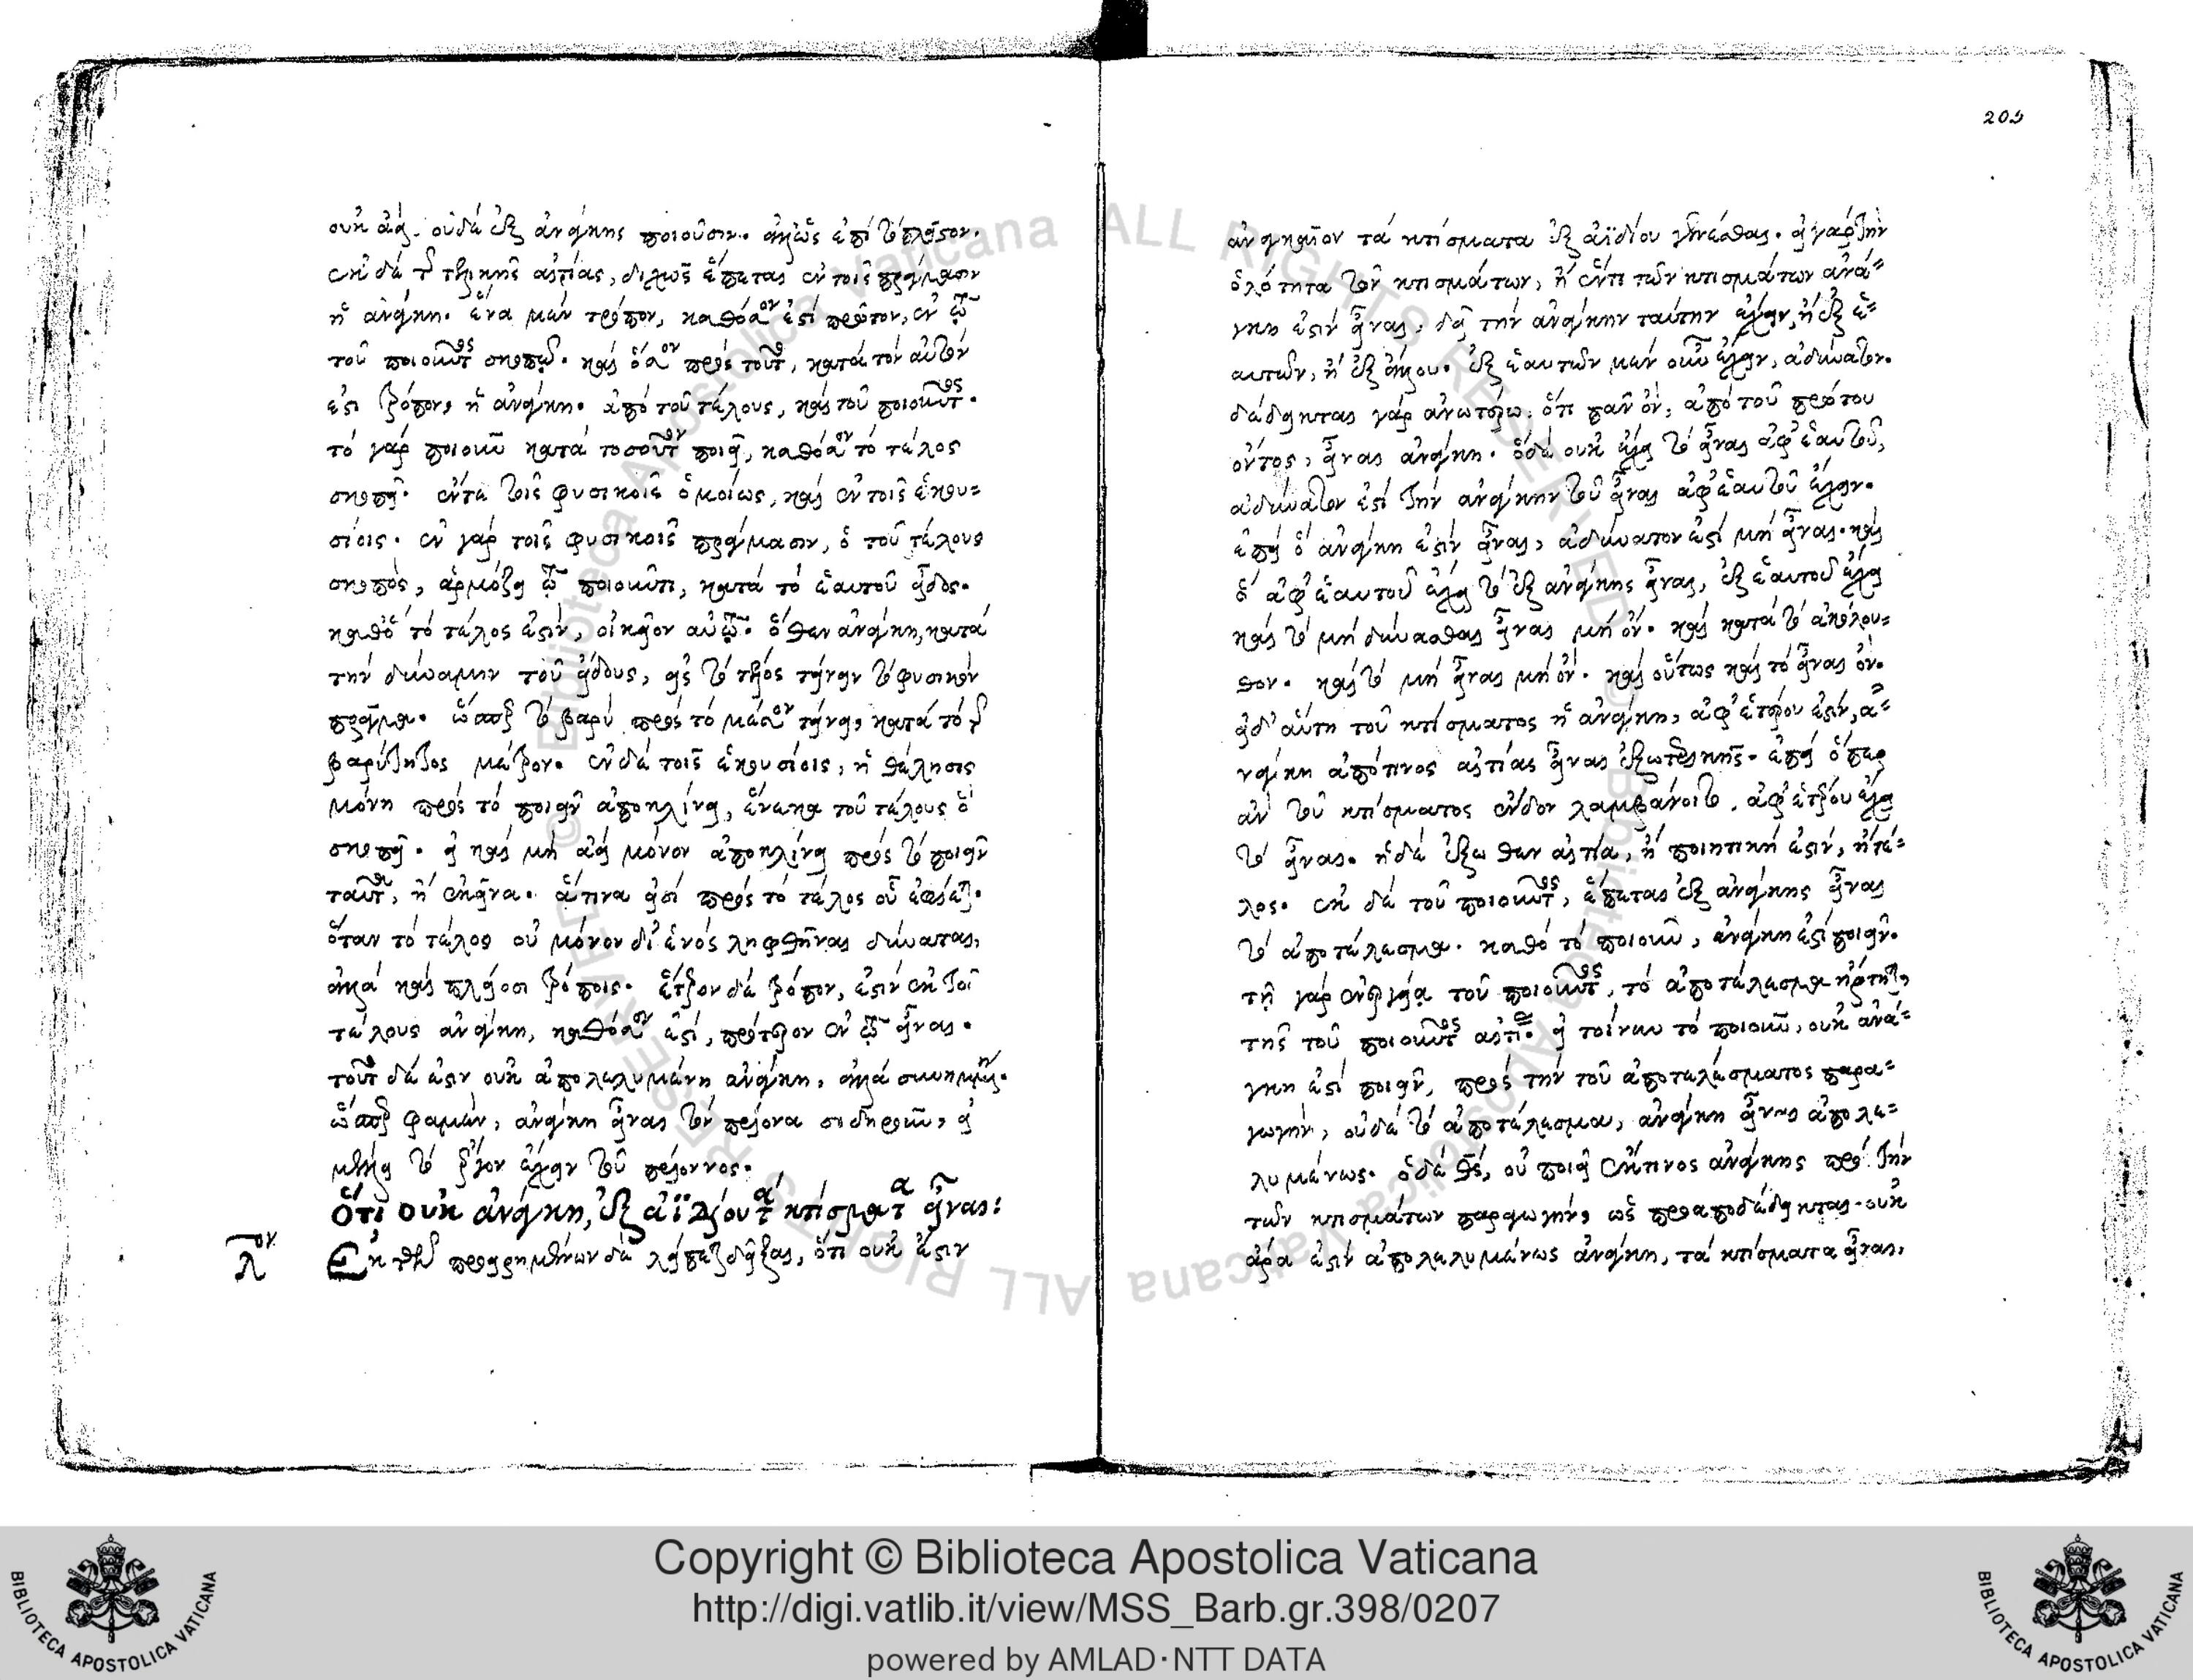 οὐκ ἀεὶ. οὐδὲ ἐξ ἀνάγκης ποιοῦσιν. ἀλλ' ὡς ἐπὶ τὸ πλεῖστον.
ἐκ δὲ τῆς τελικῆς αἰτίας, διχῶς ἕπεται ἐν τοῖς πράγμασιν
ἡ ἀνάγκη. ἕνα μὲν τρόπον, καθόσον ἐστὶ πρῶτον, ἐν τῷ
τοῦ ποιοῦντος σκοπῷ. καὶ ὅσον πρὸς τοῦτο, κατὰ τὸν αὐτὸν
ἐστὶ τρόπον, ἡ ἀνάγκη. ἀπὸ τοῦ τέλους, καὶ τοῦ ποιοῦντος.
τὸ γὰρ ποιοῦν κατὰ τοσοῦτον ποιεῖ, καθόσον τὸ τέλος
σκοπεῖ. ἔν τε τοῖς φυσικοῖς ὁμοίως, καὶ ἐν τοῖς ἑκου=
σίοις. ἐν γὰρ τοῖς φυσικοῖς πράγμασιν, ὁ τοῦ τέλους
σκοπὸς, ἁρμόζει τῷ ποιοῦντι, κατὰ τὸ ἑαυτοῦ εἶδος.
καθὸ τὸ τέλος ἐστὶν, οἰκεῖον αὐτῷ. ὅθεν ἀνάγκη, κατὰ
τὴν δύναμιν τοῦ εἴδους, εἰς τὸ τέλος τείνειν τὸ φυσικὸν
πρᾶγμα. ὥσπερ τὸ βαρὺ πρὸς τὸ μέσον τείνει, κατὰ τὸ τῆς
βαρύτητος μέτρον. ἐν δὲ τοῖς ἑκουσίοις, ἡ θέλησις
μόνη πρὸς τὸ ποιεῖν ἀποκλίνει, ἕνεκα τοῦ τέλους ὃ
σκοπεῖ. εἰ καὶ μὴ ἀεὶ μόνον ἀποκλίνει πρὸς τὸ ποιεῖν
ταῦτα, ἢ ἐκεῖνα. ἅτινα εἰσὶ πρὸς τὸ τέλος οὗ ἐφίεται.
ὅταν τὸ τέλος οὐ μόνον δι' ἑνὸς ληφθῆναι δύναται,
ἀλλὰ καὶ πλείοσι τρόποις. ἕτερον δὲ τρόπον, ἐστὶν ἐκ τοῦ
τέλους ἀνάγκη, καθόσον ἐστὶ, πρότερον ἐν τῷ εἶναι.
τοῦτο δὲ ἐστιν οὐκ ἀπολελυμένη ἀνάγκη, ἀλλὰ
ὥσπερ φαμὲν, ἀνάγκη εἶναι τὸν πρίονα σιδηροῦν, εἰ
μέλλει τὸ ἔργον ἔχειν τοῦ πρίονος.
Ὅτι οὐκ ἀνάγκη, ἐξ ἀϊδίου τὰ κτίσματα εἶναι:
λον Ἐκ τῶν προειρημένων δὲ λείπεται δεῖξαι, ὅτι οὐκ ἔστιν
209
ἀναγκαῖον τὰ κτίσματα ἐξ ἀϊδίου γενέσθαι. εἰ γὰρ τὴν
ὁλότητα τῶν κτισμάτων, ἢ ἕν τι τῶν κτισμάτων ἀνά=
γκη ἐστὶν εἶναι, δεῖ τὴν ἀνάγκην ταύτην ἔχειν, ἢ ἐξ ἑ=
αυτῶν, ἢ ἐξ ἄλλου. ἐξ ἑαυτῶν μὲν οὖν ἔχειν, ἀδύνατον.
δέδεικται γὰρ ἀνωτέρω, ὅτι πᾶν ὂν, ἀπὸ τοῦ πρώτου
ὄντος, εἶναι ἀνάγκη. ὃ δὲ οὐκ ἔχει τὸ εἶναι ἀφ' ἑαυτοῦ,
ἀδύνατον ἐστὶ τὴν ἀνάγκην τοῦ εἶναι ἀφ' ἑαυτοῦ ἔχειν.
ἐπεὶ ὃ ἀνάγκη ἐστὶν εἶναι, ἀδύνατον ἐστὶ μὴ εἶναι. καὶ
ὃ ἀφ' ἑαυτοῦ ἔχει τὸ ἐξ ἀνάγκης εἶναι, ἐξ ἑαυτοῦ ἔχει
καὶ τὸ μὴ δύνασθαι εἶναι μὴ ὄν. καὶ κατὰ τὸ ἀκόλου=
θον. καὶ τὸ μὴ εἶναι μὴ ὄν. καὶ οὕτως καὶ τὸ εἶναι ὄν.
εἰ δ' αὕτη τοῦ κτίσματος ἡ ἀνάγκη, ἀφ' ἑτέρου ἐστὶν, ἀ=
νάγκη ἀπό τινος αἰτίας εἶναι ἐξωτερικῆς. ἐπεὶ ὅπερ
ἂν τοῦ κτίσματος ἔνδον λαμβάνοιτο, ἀφ' ἑτέρου ἔχει
τὸ εἶναι. ἡ δὲ ἔξωθεν αἰτία, ἢ ποιητική ἐστιν, ἢ τέ=
λος. ἐκ δὲ τοῦ ποιοῦντος, ἕπεται ἐξ ἀνάγκης εἶναι
τὸ ἀποτέλεσμα. καθὸ τὸ ποιοῦν, ἀνάγκη ἐστὶ ποιεῖν.
τῇ γὰρ ἐνεργείᾳ τοῦ ποιοῦντος, τὸ ἀποτέλεσμα ἤρτηται,
τῆς τοῦ ποιοῦντος αἰτίας. εἰ τοίνυν τὸ ποιοῦν, οὐκ ἀνά=
γκη ἐστὶ ποιεῖν, πρὸς τὴν τοῦ ἀποτελέσματος παρα=
γωγὴν, οὐδὲ τὸ ἀποτέλεσμα, ἀνάγκη εἶναι ἀπολε=
λυμένως. ὁ δὲ θεὸς, οὐ ποιεῖ ἔκ τινος ἀνάγκης πρὸς τὴν
τῶν κτισμάτων παραγωγὴν, ὡς προαποδέδεικται. οὐκ
ἄρα ἐστὶν ἀπολελυμένως ἀνάγκη, τὰ κτίσματα εἶναι,
Copyright © Biblioteca Apostolica Vaticana
http://digi.vatlib.it/view/MSS_Barb.gr.398/0207
powered by AMLAD·NTT DATA
BIBLIOTECA APOSTOLICA VATICANA
BIBLIOTECA APOSTOLICA VATICANA